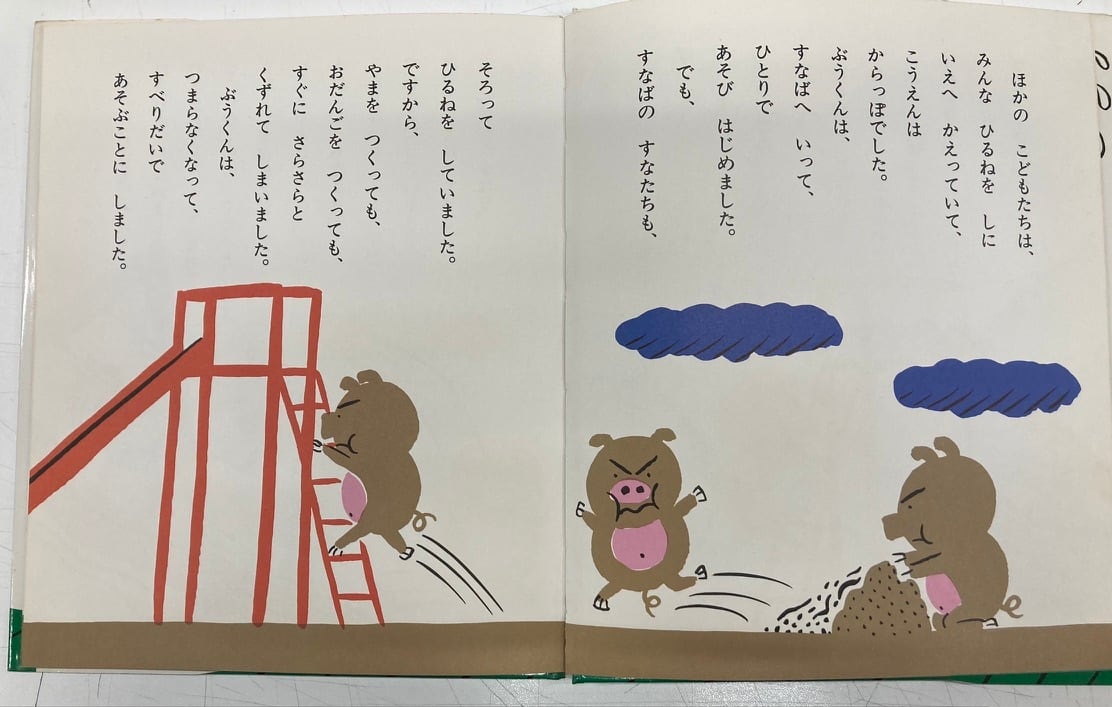 ほかの　こどもたちは、
みんな　ひるねを　しに
いえへ　かえっていて、
こうえんは
からっぽでした。
ぶうくんは、
すなばへ　いって、
ひとりで
あそび　はじめました。
でも、
すなばの　すなたちも、
そろって
ひるねを　していました。
ですから、
やまを　つくっても、
おだんごを　つくっても、
すぐに　さらさらと
くずれて　しまいました。
ぶうくんは、
つまらなくなって、
すべりだいで
あそぶことに　しました。